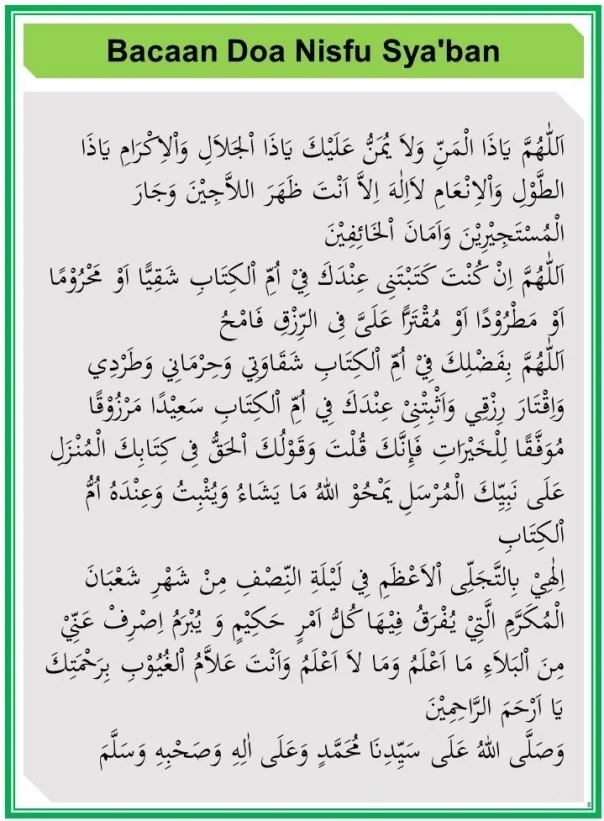 Bacaan Doa Nisfu Sya'ban
اَللّٰهُمَّ يَاذَا الْمَنِّ وَلاَ يُمَنُّ عَلَيْكَ يَاذَا الْجَلاَلِ وَاْلاِكْرَامِ يَاذَا
الطَّوْلِ وَاْلاِنْعَامِ لاَاِلٰهَ اِلاَّ اَنْتَ ظَهَرَ اللاَّجِيْنَ وَجَارَ
الْمُسْتَجِيْرِيْنَ وَاَمَانَ الْخَائِفِيْنَ
اَللّٰهُمَّ اِنْ كُنْتَ كَتَبْتَنِى عِنْدَكَ فِيْ اُمِّ الْكِتَابِ شَقِيًّا اَوْ مَحْرُوْمًا
اَوْ مَطْرُوْدًا اَوْ مُقْتَرًّا عَلَىَّ فِى الرِّزْقِ فَامْحُ
اَللّٰهُمَّ بِفَضْلِكَ فِيْ اُمِّ الْكِتَابِ شَقَاوَتِي وَحِرْمَانِي وَطَرْدِي
وَاِقْتَارَ رِزْقِي وَاَثْبِتْنِىْ عِنْدَكَ فِي اُمِّ الْكِتَابِ سَعِيْدًا مَرْزُوْقًا
مُوَفَّقًا لِلْخَيْرَاتِ فَإِنَّكَ قُلْتَ وَقَوْلُكَ الْحَقُّ فِى كِتَابِكَ الْمُنْزَلِ
عَلَى نَبِيِّكَ الْمُرْسَلِ يَمْحُوْ اللهُ مَا يَشَاءُ وَيُثْبِتُ وَعِنْدَهُ اُمُّ
الْكِتَابِ
اِلٰهِيْ بِالتَّجَلِّى اْلاَعْظَمِ فِي لَيْلَةِ النِّصْفِ مِنْ شَهْرِ شَعْبَانَ
الْمُكَرَّمِ الَّتِيْ يُفْرَقُ فِيْهَا كُلُّ اَمْرٍ حَكِيْمٍ وَ يُبْرَمُ اِصْرِفْ عَنِّيْ
مِنَ الْبَلاَءِ مَا اَعْلَمُ وَمَا لاَ اَعْلَمُ وَاَنْتَ عَلاَّمُ الْغُيُوْبِ بِرَحْمَتِكَ
يَا اَرْحَمَ الرَّاحِمِيْنَ
وَصَلَّى اللهُ عَلَى سَيِّدِنَا مُحَمَّدٍ وَعَلَى اٰلِهِ وَصَحْبِهِ وَسَلَّمَ